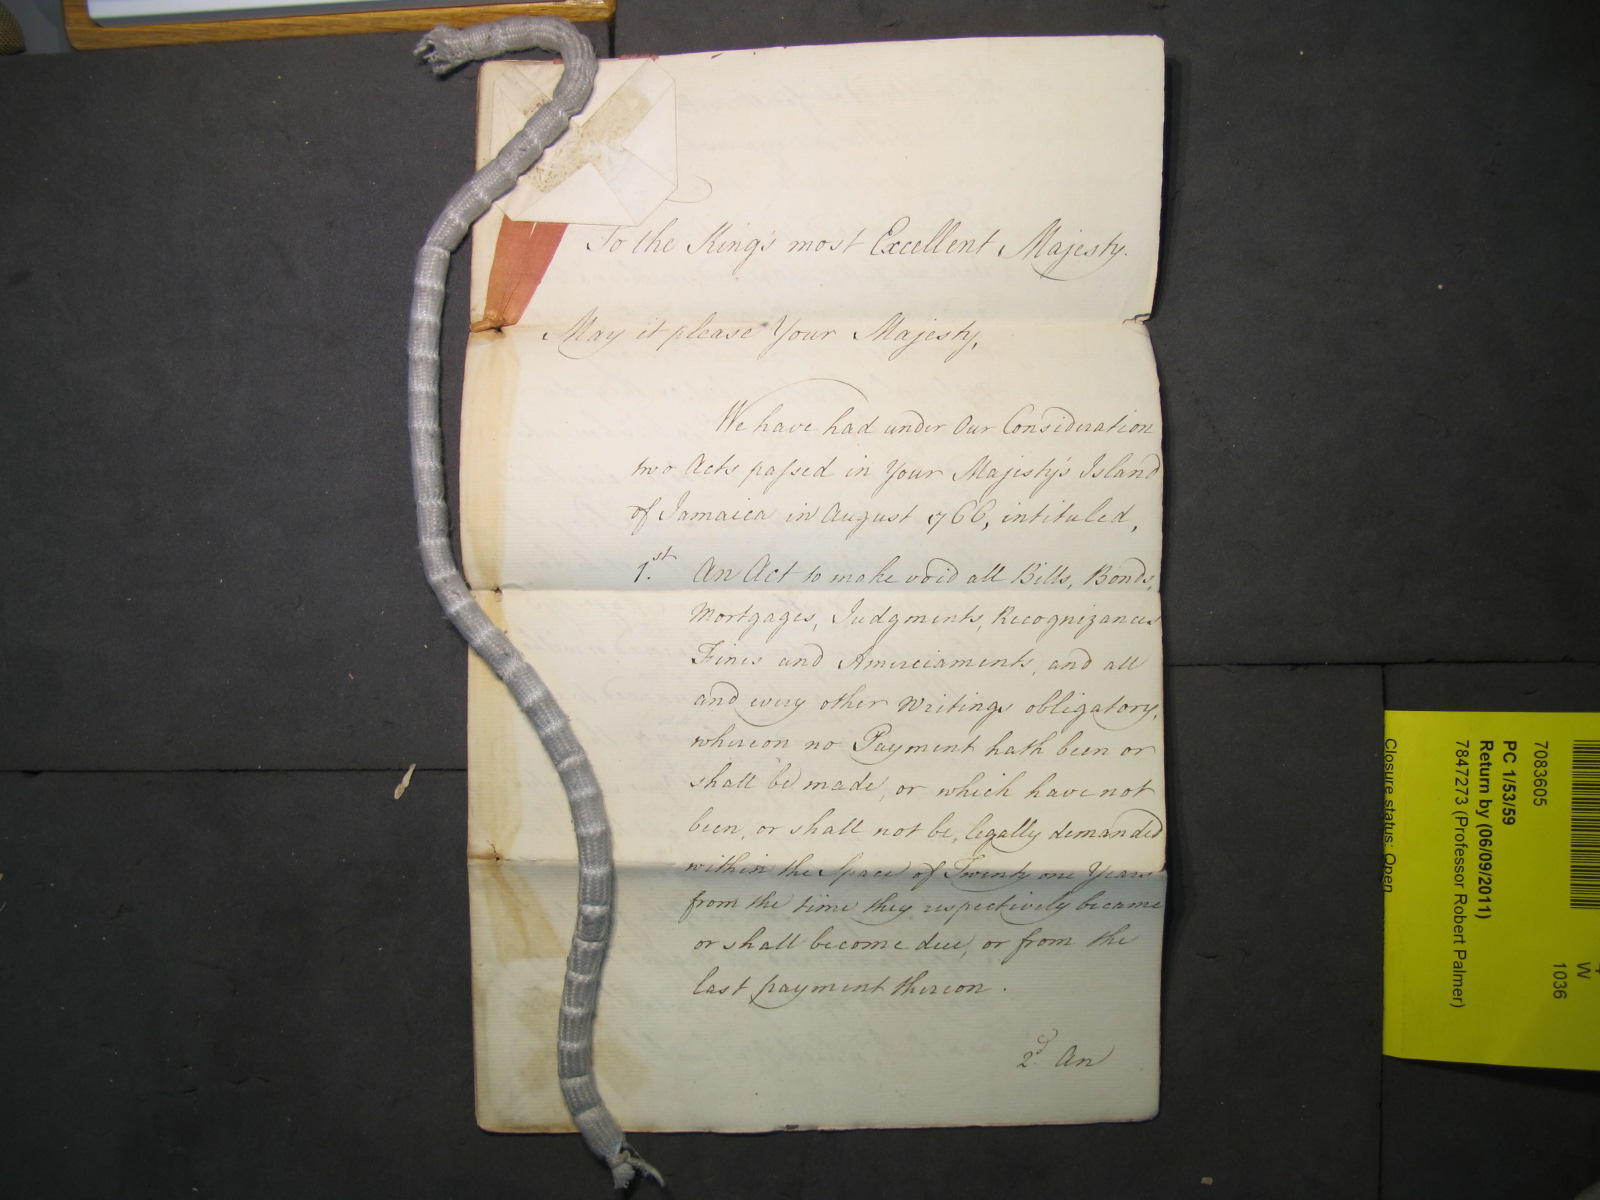 To the King's most Excellent Majesty.
May it please Your Majesty,
We have had under Our Consideration
two Acts passed in Your Majesty's Island
of Jamaica in August 1766, intituled,
1.st An Act to make void all Bills, Bonds,
Mortgages, Judgments, Recognizances
Fines and Amerciaments, and all
and every other Writings obligatory,
whereon no Payment hath been or
shall be made, or which have not
been, or shall not be, legally demanded
within the Space of Twenty one Years
from the time they respectively became
or shall become due, or from the
last payment thereon.
2.d An
7083605
PC 1/53/59
Return by (06/09/2011)
7847273 (Professor Robert Palmer)
Closure status: Open
W
1036